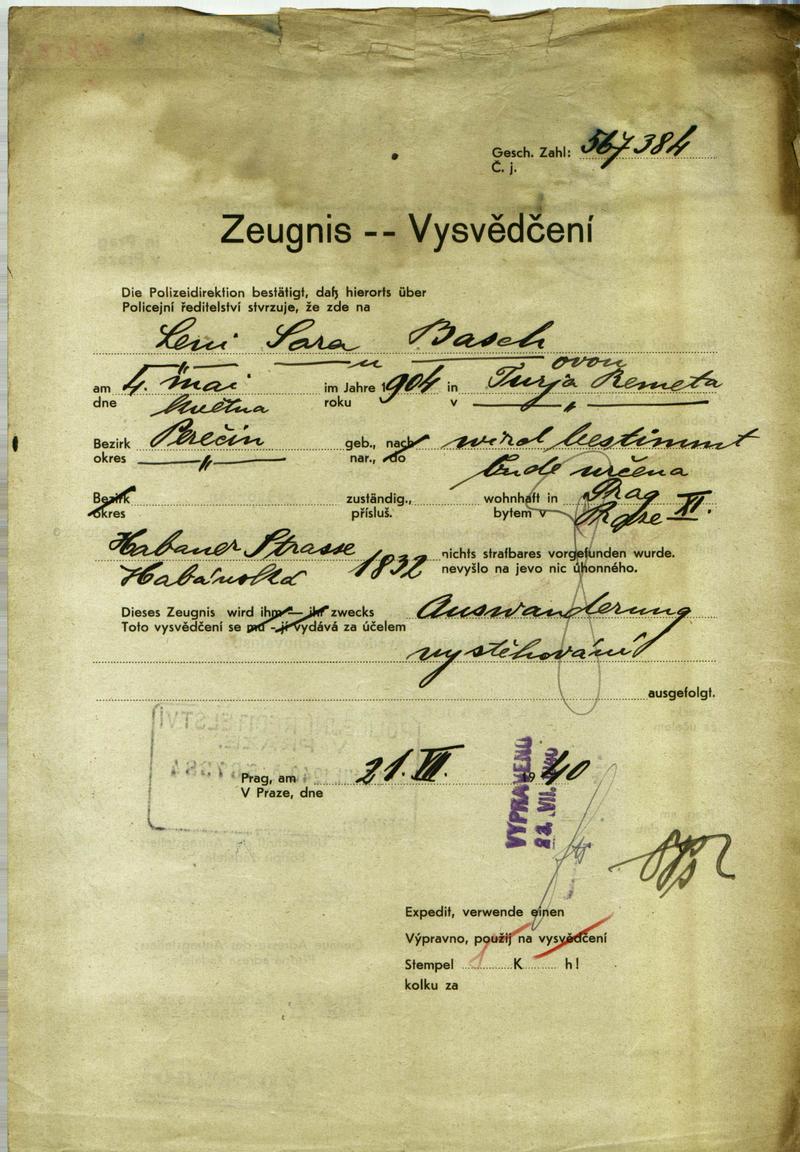 Gesch. Zahl: 567384
Č. j.
Zeugnis -- Vysvědčení
Die Polizeidirektion bestätigt, daß hierorts über
Policejní ředitelství stvrzuje, že zde na
Leni Sara Basch
ovou
am 4. Mai im Jahre 1904 in Turja Remeta
dne května roku v "
Bezirk Perečin geb., nach wird bestimmt
okres " nar., do bude určena
Bezirk zuständig., wohnhaft in Prag
okres přísluš. bytem v Praze XI.
Habaner Strasse nichts strafbares vorgefunden wurde.
Habánská 1832 nevyšlo na jevo nic úhonného.
Dieses Zeugnis wird ihm — ihr zwecks Auswanderung
Toto vysvědčení se mu - jí vydává za účelem
vystěhování
ausgefolgt.
Prag, am 21. VII. 1940
V Praze, dne
VYPRAVENO
23. VII. 1940
Expedit, verwende einen
Výpravno, použij na vysvědčení
Stempel K h!
kolku za